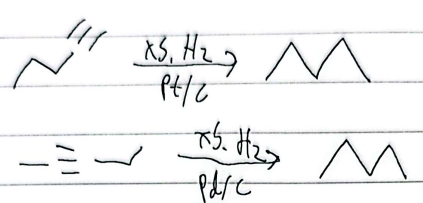 xs. H2
Pt/C
xs. H2
Pd/C